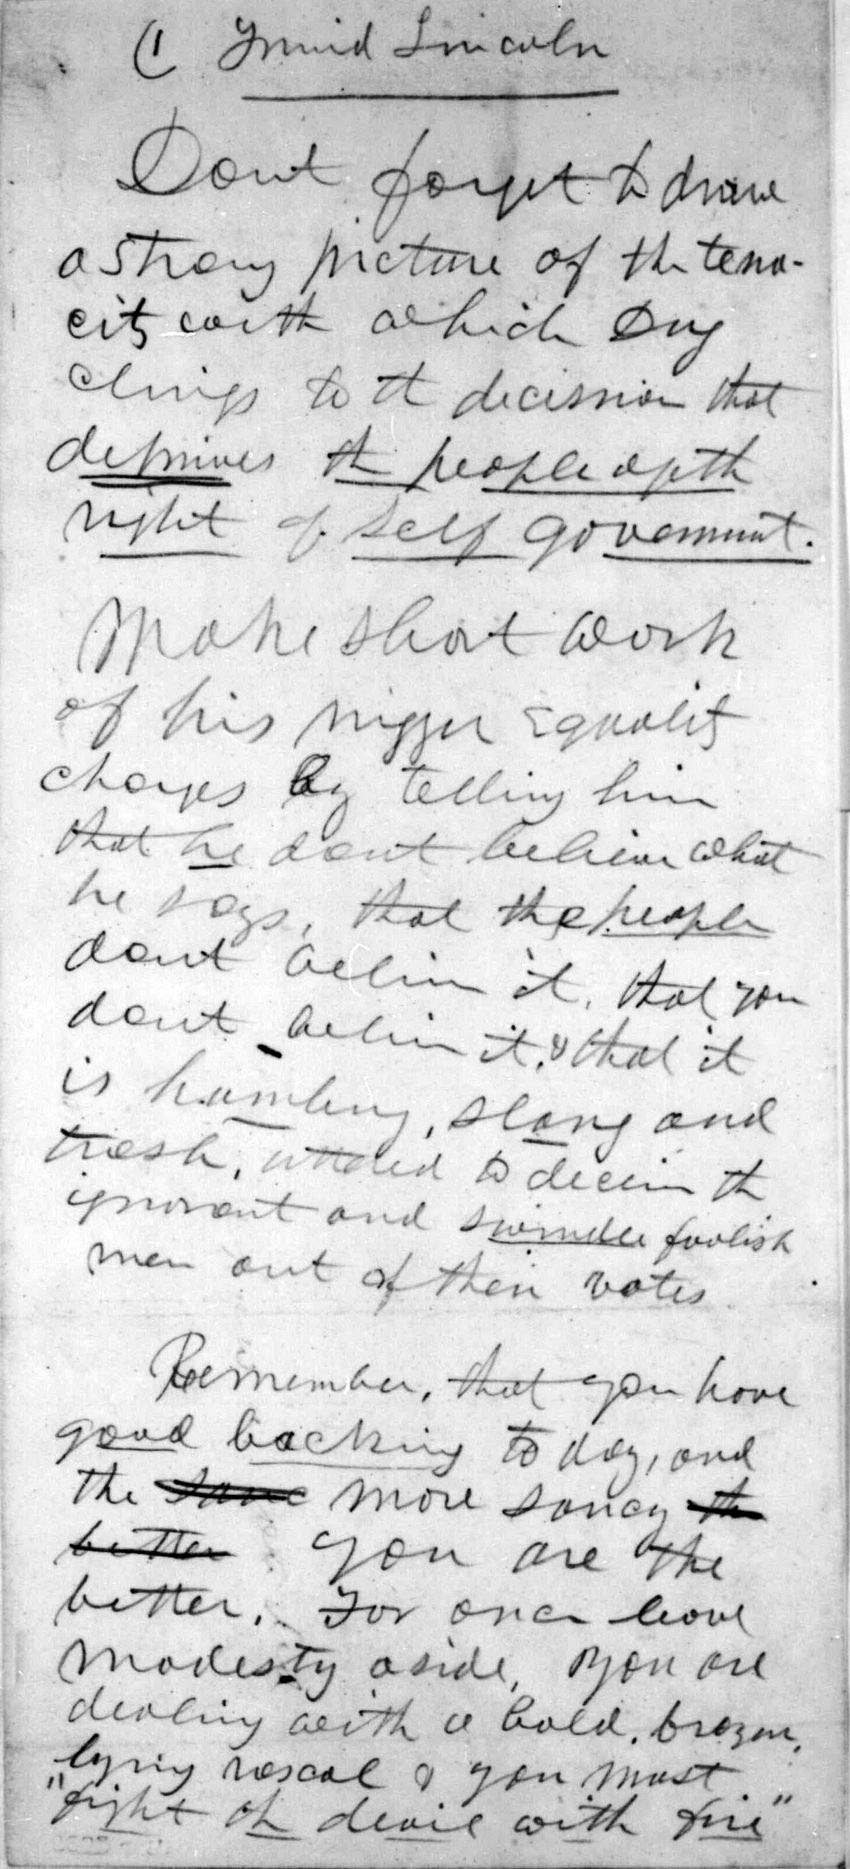 (1 Friend Lincoln
Dont forget to draw
a strong picture of the tena-
city with which Dug
clings to th decission that
deprives th people of th
right of self goverment.
Make short work
of his nigger Equality
charges by telling him
that he dont believe what
he says, that the people
dont believe it, that you
dont believe it, & that it
is humbug, slang and
trash, uttered to deceive th
ignorant and swindle foolish
men out of their votes
Remember, that you have
good backing to day, and
the same more saucy the
better you are the
better. For once leave
modesty aside, you are
dealing with a bold, brazen,
lying rascal & you must
"fight th devil with fire"